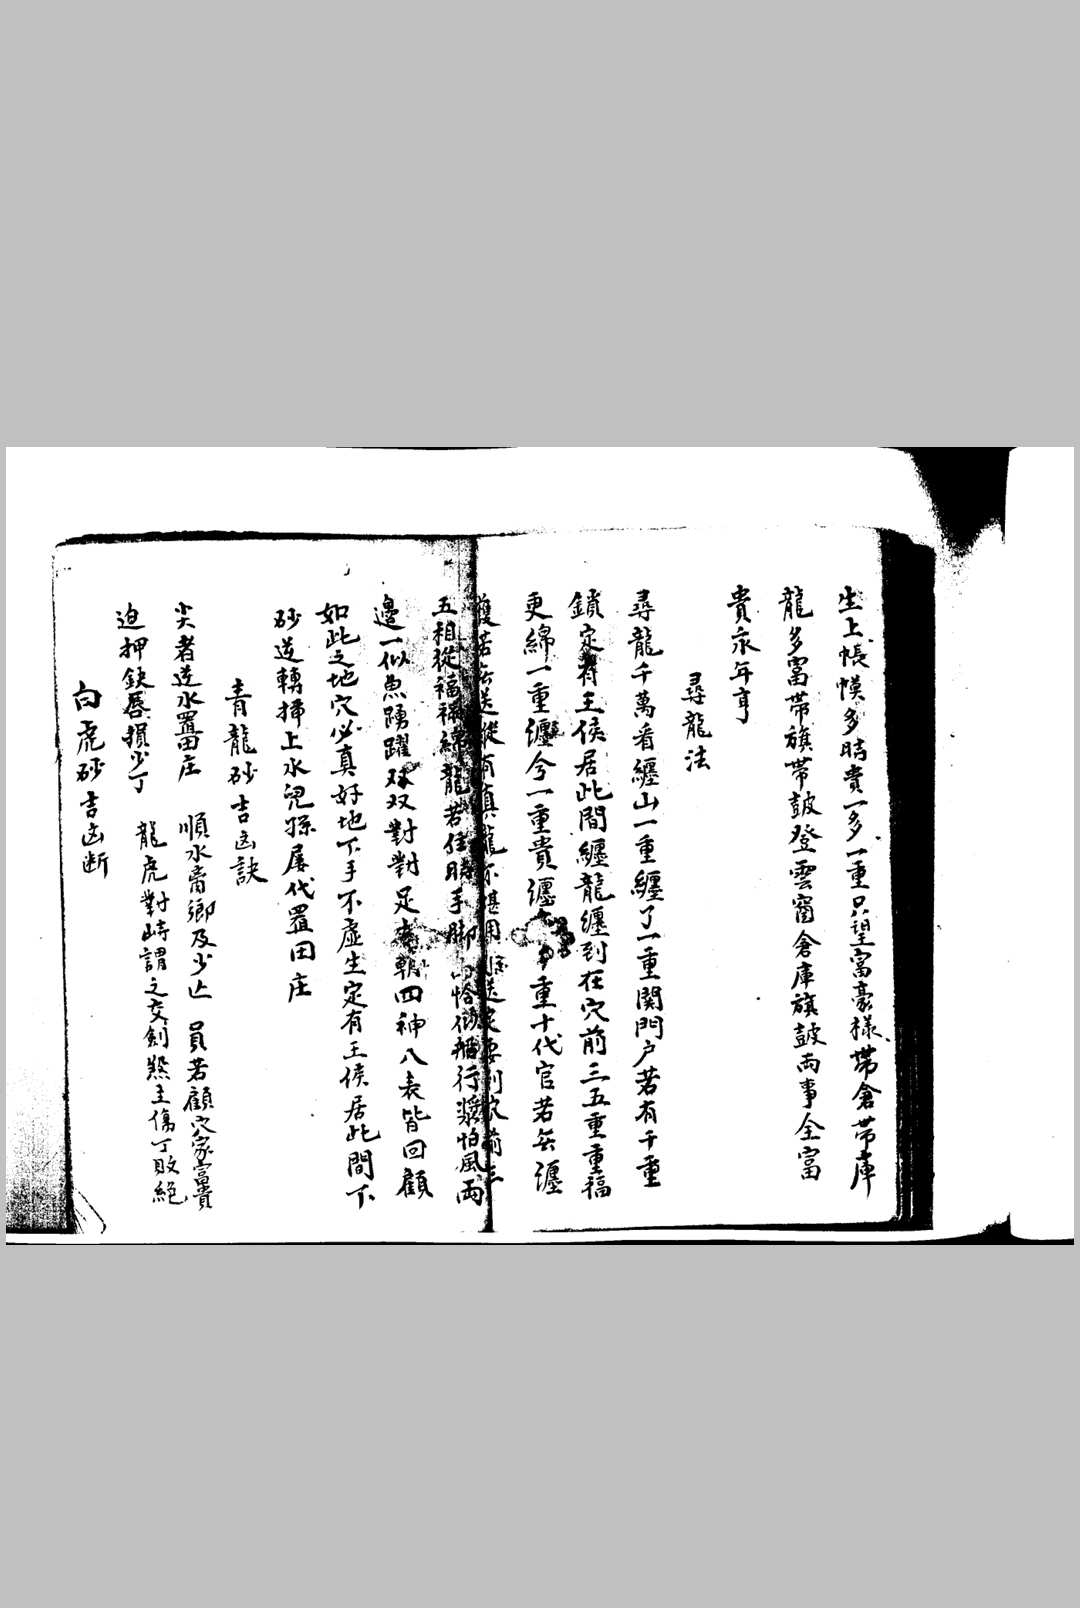 生上帳幙多時貴一多一重只望富豪樣帶倉帶庫
龍多富帶旗帶鼓登雲霄倉庫旗鼓兩事全富
貴永年亨
尋龍法
尋龍千萬看纏山一重纏了一重関門户若有千重
鎖定有王侯居此間纏龍纏到在穴前三五重重福
更綿一重纏今一重貴纏 重十代官若無纏
護若無送從有真龍不堪用 送定要到穴前三
五相從福祿綿龍若住時手脚 恰似船行漿怕風雨
邊一似魚踴躍双双對對足 朝四神八表皆回顧
如此之地穴必真好地下手不虛生定有王侯居此間下
砂逆轉掃上水兒孫屢代置田庄
青龍砂吉凶訣
尖者逆水置田庄 順水離鄉及少亡 員若顧穴家富貴
迫押缺唇損少丁 龍虎對峙謂之交劍煞主傷丁敗絕
白虎砂吉凶断